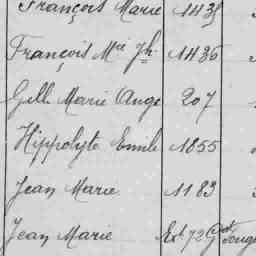 François Marie 1435
François Mie Jh 1436
Gille Marie Ange 207
Hippolyte Emile 1855
Jean Marie 1183
Jean Marie Ext 729